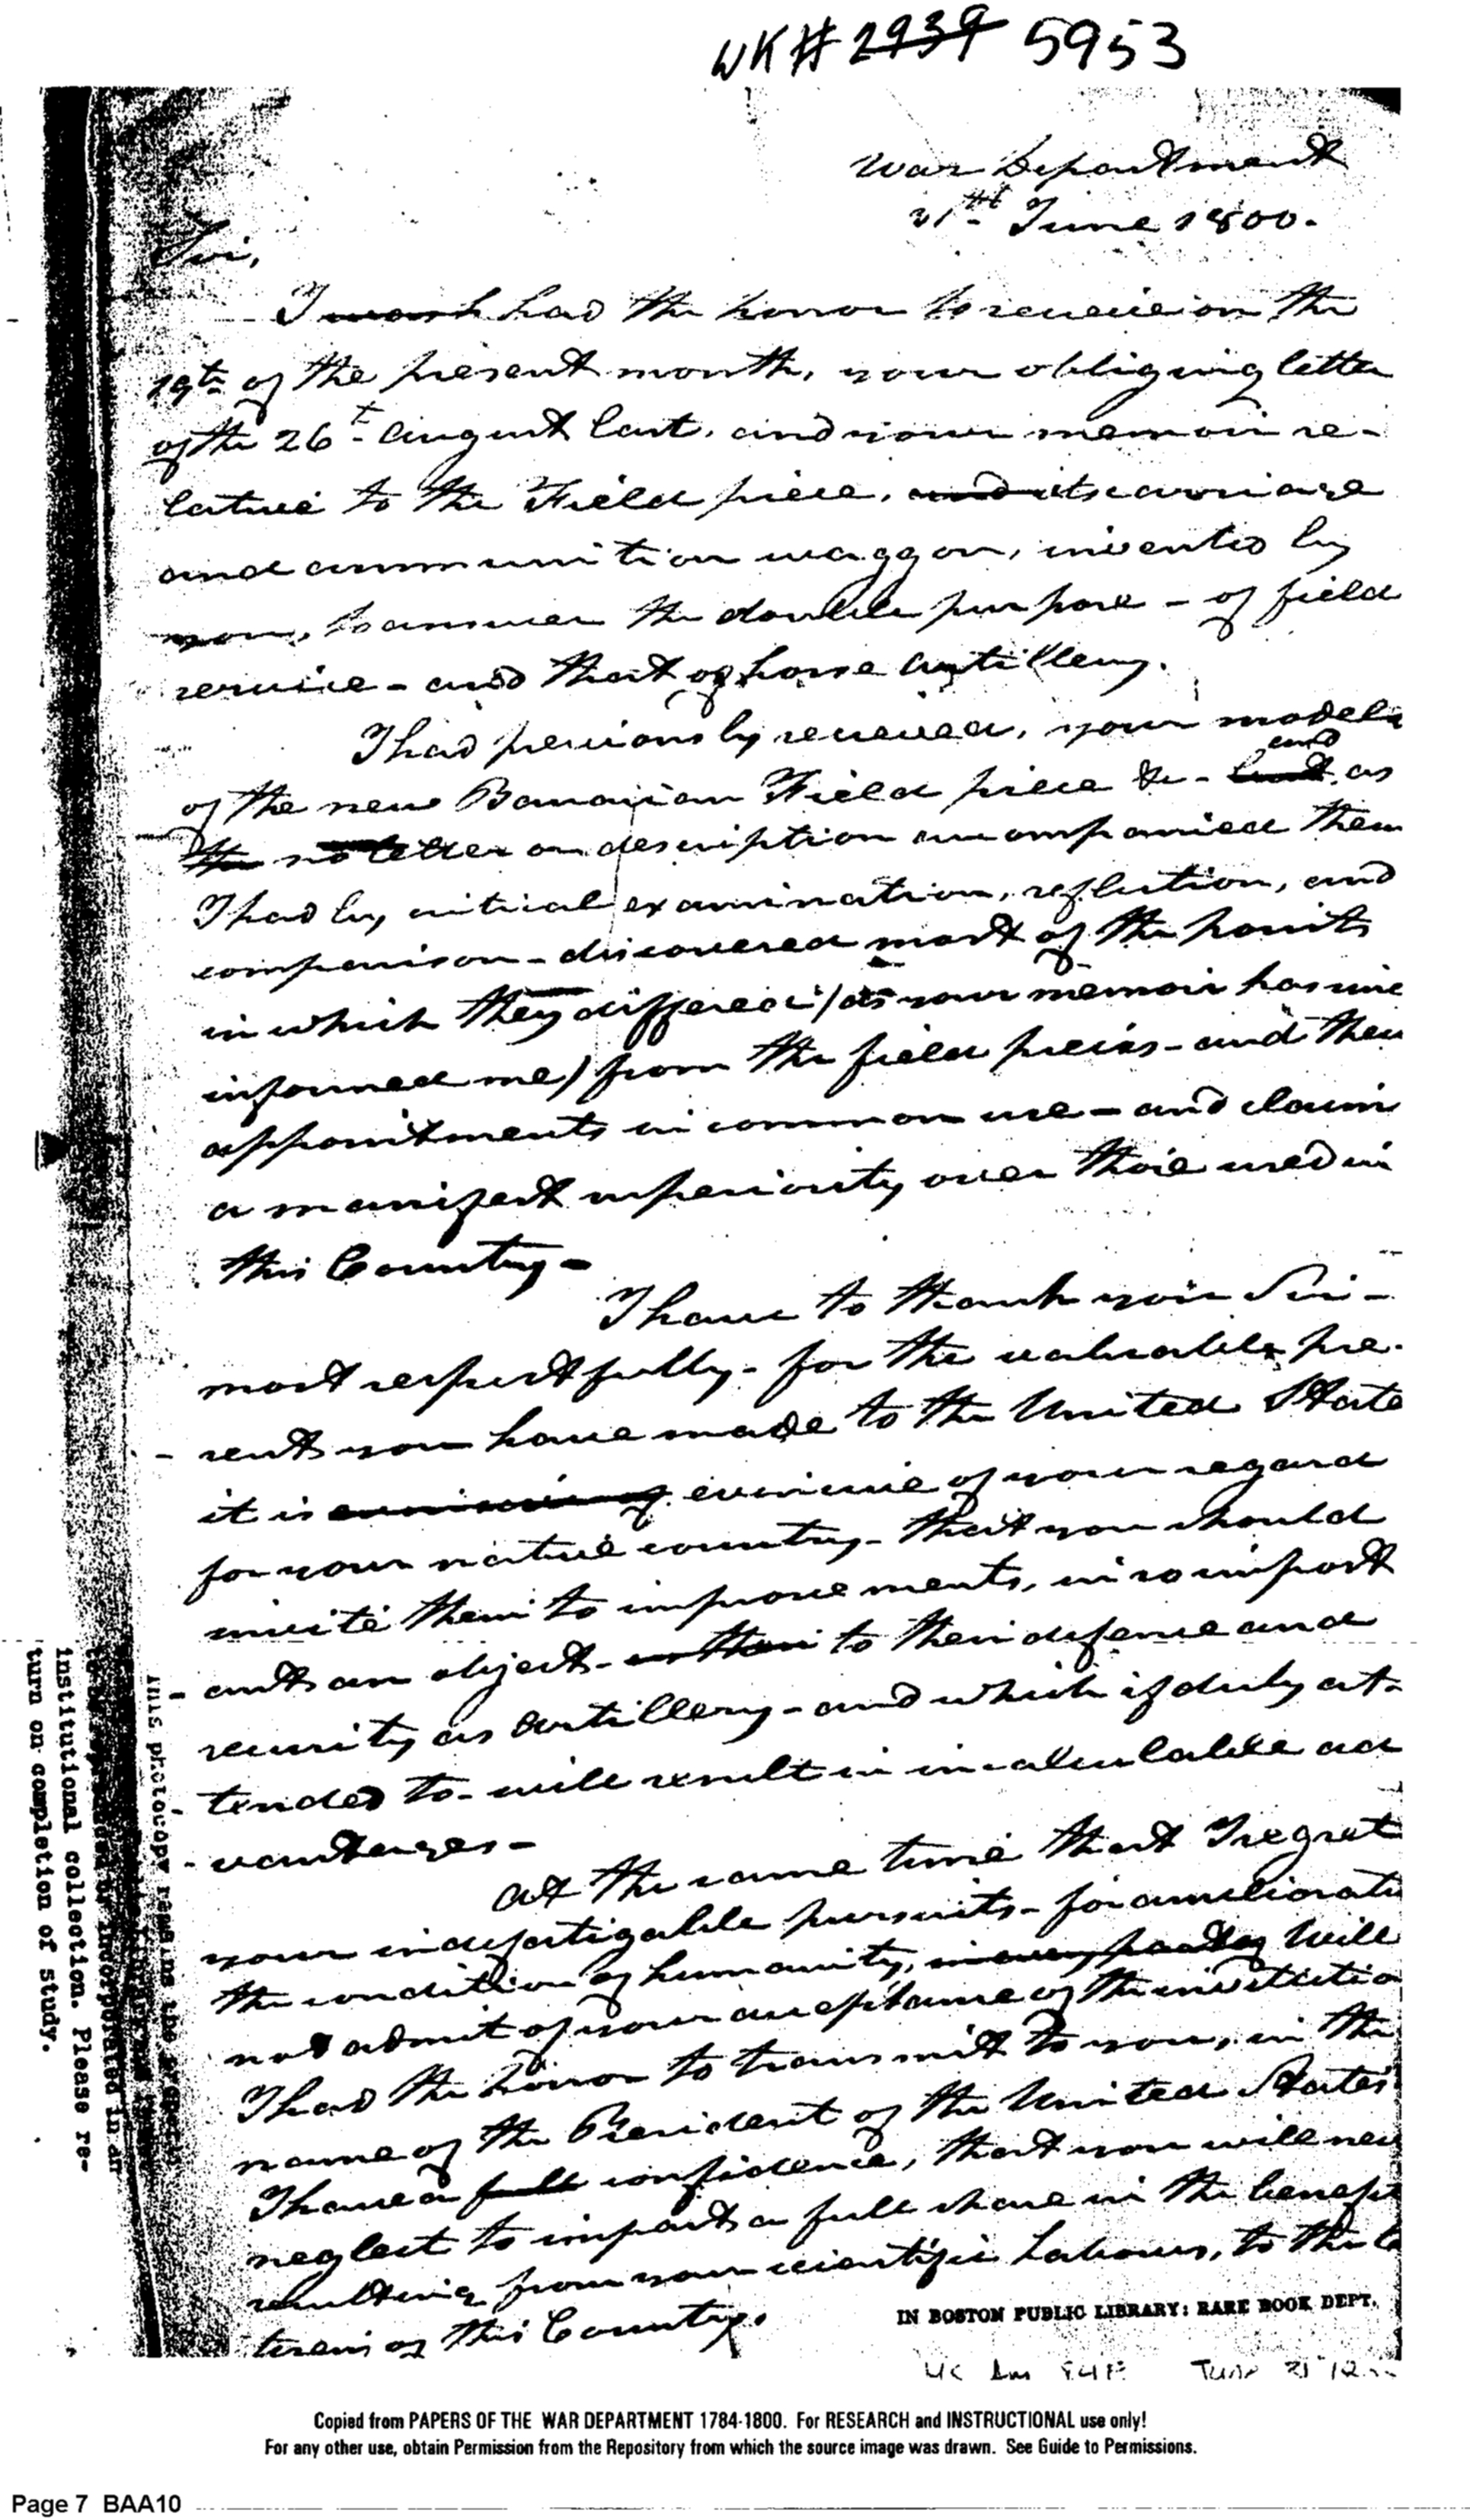 WK# 2939 5953
War Department
21st June 1800.
Sir,
I wash had the honor to receive on the
19th of the present month, your obliging letter
of the 26t august last, and your memoir re-
lative to the Field piece, and its carriage
and ammunition waggon, invented by
you, to answer the double purpose - of field
service - and that of horse artillery.
I had previously received, your models
and
of the new Bavarian Field piece &c - but as
the no letter or description accompanied them
I had by, critical examination, reflection, and
comparison - discovered most of the points
in which they differed (as your memoir has since
informed me) from the field pieces - and their
appointments in common use - and claim
a manifest superiority over those used in
this Country -
I have to thank you Sir -
most respectfully - for the valuable pre-
sent you have made to the United State
it is evincive of your regard
for your native country - that you should
invite them to improvements, in so import
ant an object - to their defense and
security as artillery - and which if duly at-
tended to - will result in incalculable ad
vantages -
at the same time that I regret
your indefatigable pursuits - for ameliorati
the condition of humanity, will
not admit of your acceptance of the invitatio
I had the honor to transmit to you, in the
name of the President of the United States
I have a full confidence, that you will nev
neglect to impart a full share in the benefit
resulting from your scientific Labours, to the c
tizens of this Country.
IN BOSTON PUBLIC LIBRARY: RARE BOOK DEPT.
This photocopy remains the
incorporated in an
institutional collection. Please re-
turn on completion of study.
Copied from PAPERS OF THE WAR DEPARTMENT 1784-1800. For RESEARCH and INSTRUCTIONAL use only!
For any other use, obtain Permission from the Repository from which the source image was drawn. See Guide to Permissions.
Page 7 BAA10